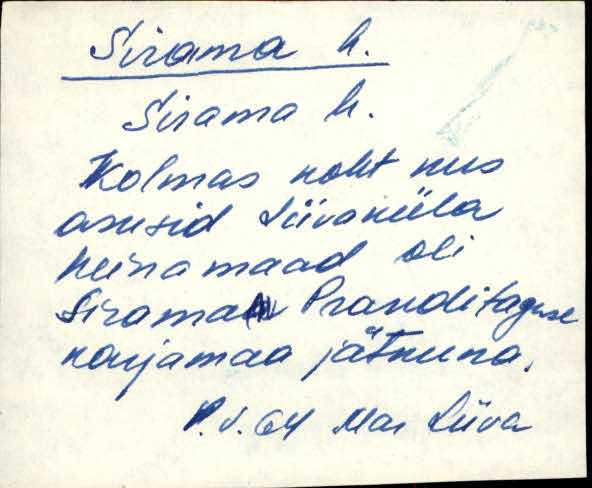 Sirama h.
Sirama h.
Kolmas koht kus
asusid Liivaküla
heinamaad oli
Sirama Pranditaguse
karjamaa jätkuna.
P. J. 64 Mai Liiva